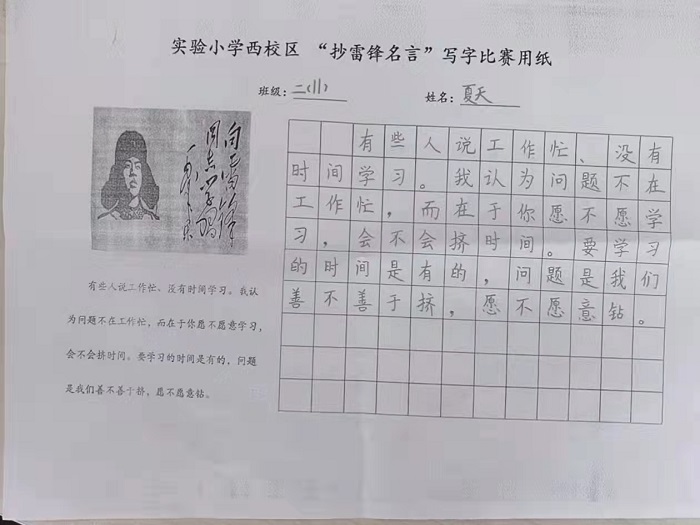 实验小学西校区 “抄雷锋名言”写字比赛用纸
班级：二(11) 姓名：夏天
向雷锋
同志学习
毛泽东
有些人说工作忙、没有时间学习。我认
为问题不在工作忙，而在于你愿不愿意学习，
会不会挤时间。要学习的时间是有的，问题
是我们善不善于挤，愿不愿意钻。
有些人说工作忙、没有
时间学习。我认为问题不在
工作忙，而在于你愿不愿学
习，会不会挤时间。要学习
的时间是有的，问题是我们
善不善于挤，愿不愿意钻。